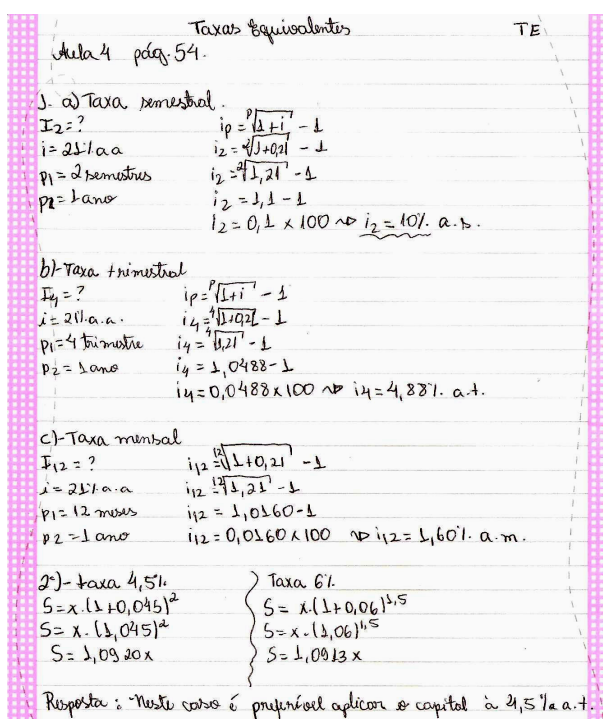 Taxas Equivalentes TE
Aula 4 pág. 54.
1- a) Taxa semestral.
I2 = ?
i = 21% a a
p1 = 2 semestres
p2 = 1 ano
ip = ᵖ√1+i - 1
i2 = ²√1+0,21 - 1
i2 = ²√1,21 - 1
i2 = 1,1 - 1
i2 = 0,1 x 100 ⇝ i2 = 10% a.s.
b)- Taxa trimestral
I4 = ?
i = 21% a.a.
p1 = 4 trimestre
p2 = 1 ano
ip = ᵖ√1+i - 1
i4 = ⁴√1+0,21 - 1
i4 = ⁴√1,21 - 1
i4 = 1,0488 - 1
i4 = 0,0488 x 100 ⇝ i4 = 4,88% a.t.
c)- Taxa mensal
I12 = ?
i = 21% a.a
p1 = 12 meses
p2 = 1 ano
i12 = ¹²√1+0,21 - 1
i12 = ¹²√1,21 - 1
i12 = 1,0160 - 1
i12 = 0,0160 x 100 ⇝ i12 = 1,60% a.m.
2º)- taxa 4,5%
S = x.(1+0,045)²
S = x.(1,045)²
S = 1,0920x
Taxa 6%
S = x.(1+0,06)¹,⁵
S = x.(1,06)¹,⁵
S = 1,0913x
Resposta: Neste caso é preferível aplicar o capital à 4,5% a a.t.